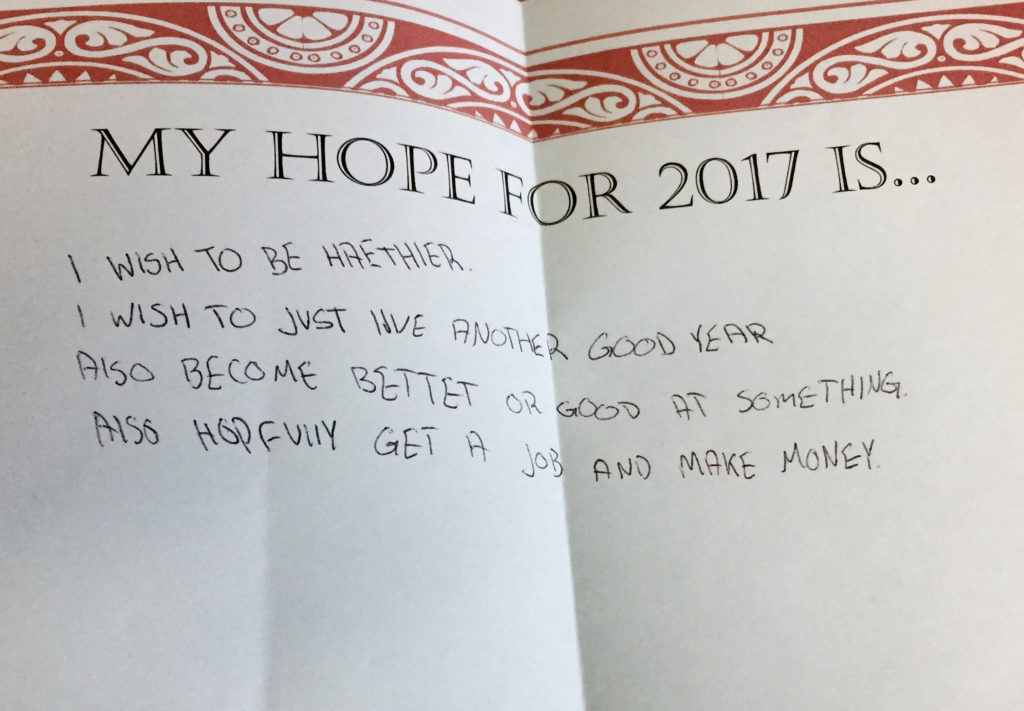 MY HOPE FOR 2017 IS...
I WISH TO BE HAETHIER.
I WISH TO JUST lIVE ANOTHER GOOD YEAR
AlSO BECOME BETTET OR GOOD AT SOMETHING.
AlSO HOPFUllY GET A JOB AND MAKE MONEY.